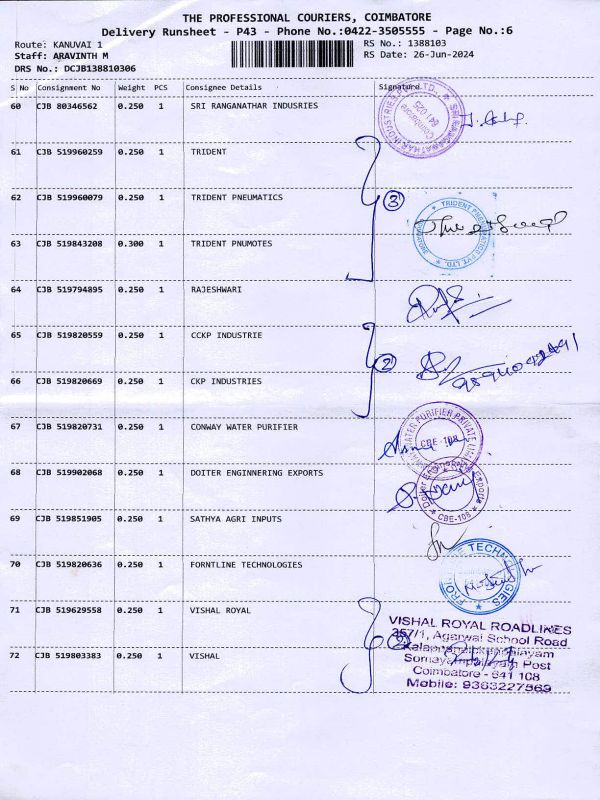 THE PROFESSIONAL COURIERS, COIMBATORE
Delivery Runsheet - P43 - Phone No.:0422-3505555 - Page No.:6
Route: KANUVAI 1
Staff: ARAVINTH M
DRS No.: DCJB138810306
RS No.: 1388103
RS Date: 26-Jun-2024
S No Consignment No Weight PCS Consignee Details Signature
60 CJB 80346562 0.250 1 SRI RANGANATHAR INDUSRIES
SRI RANGANATHAR INDUSTRIES Coimbatore 641 025
61 CJB 519960259 0.250 1 TRIDENT
62 CJB 519960079 0.250 1 TRIDENT PNEUMATICS
3
TRIDENT PNEUMATICS PVT. LTD.
63 CJB 519843208 0.300 1 TRIDENT PNUMOTES
64 CJB 519794895 0.250 1 RAJESHWARI
65 CJB 519820559 0.250 1 CCKP INDUSTRIE
2
66 CJB 519820669 0.250 1 CKP INDUSTRIES
67 CJB 519820731 0.250 1 CONWAY WATER PURIFIER
WATER PURIFIER PRIVATE
CBE-108
68 CJB 519902068 0.250 1 DOITER ENGINNERING EXPORTS
Doiter Engineering Exports
CBE-108
69 CJB 519851905 0.250 1 SATHYA AGRI INPUTS
70 CJB 519820636 0.250 1 FORNTLINE TECHNOLOGIES
71 CJB 519629558 0.250 1 VISHAL ROYAL
VISHAL ROYAL ROADLINES
357/1, Agarwal School Road
Somayampalayam Post
Coimbatore - 641 108
Mobile: 9363227569
72 CJB 519803383 0.250 1 VISHAL